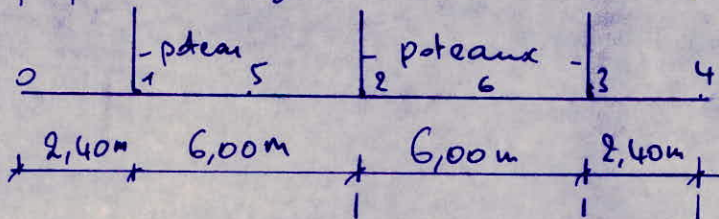 poteau poteaux
0 1 5 2 6 3 4
2,40m 6,00m 6,00m 2,40m